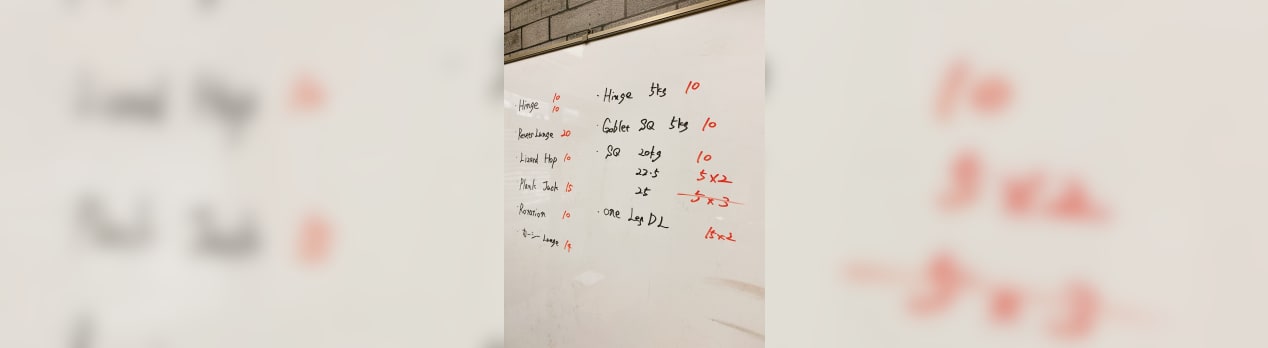 · Hinge 10
10
· Revers Lunge 20
· Lizard Hop 10
· Plank Jack 15
· Rotation 10
Lunge 15
· Hinge 5kg 10
· Goblet SQ 5kg 10
· SQ 20kg 10
22.5 5×2
25 5×3
· one Leg DL 15×2